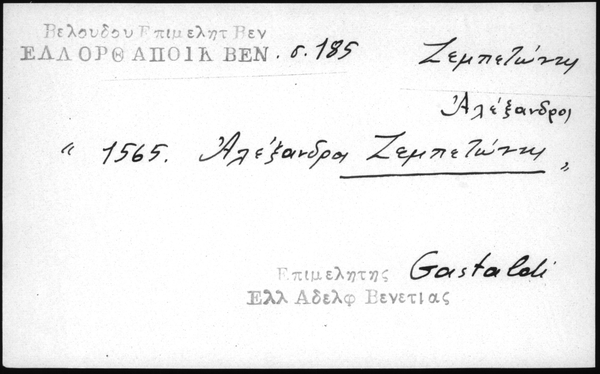 Βελουδου Επιμελητ Βεν
ΕΛΛ ΟΡΘ ΑΠΟΙΚ ΒΕΝ. σ. 185 Ζεμπετώνης
Ἀλέξανδρος
“ 1565. Ἀλέξανδρος Ζεμπετώνης „
Επιμελητης Gastaldi
Ελλ Αδελφ Βενετιας